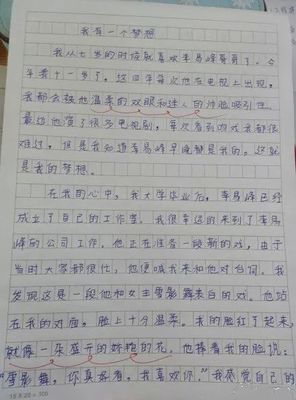 我有一个梦想
我从七岁的时候就喜欢李易峰哥哥了。今
年我十一岁了，这四年每次他在电视上出现，
我都会被他温柔的双眼和迷人的沙脸吸引住。
最近他演了很多电视剧，每次看到吻戏我都很
难过，但是我知道李易峰早晚都是我的。这就
是我的梦想。
在我的心中，我大学毕业后，李易峰已经
成立了自己的工作室。我很幸运的来到了李易
峰的公司工作。他正在准备一段新的戏，由于
当时大家都很忙，他便喊我来和他对台词。我
发现这是一段他和女主雪影舞表白的戏。他站
在我的对面，脸上十分温柔。我的脸红了起来，
就像一朵盛开的娇艳的花。他捧着我的脸说：
“雪影舞，你真好看，我喜欢你。”我感觉自己的
15 X 20 = 300